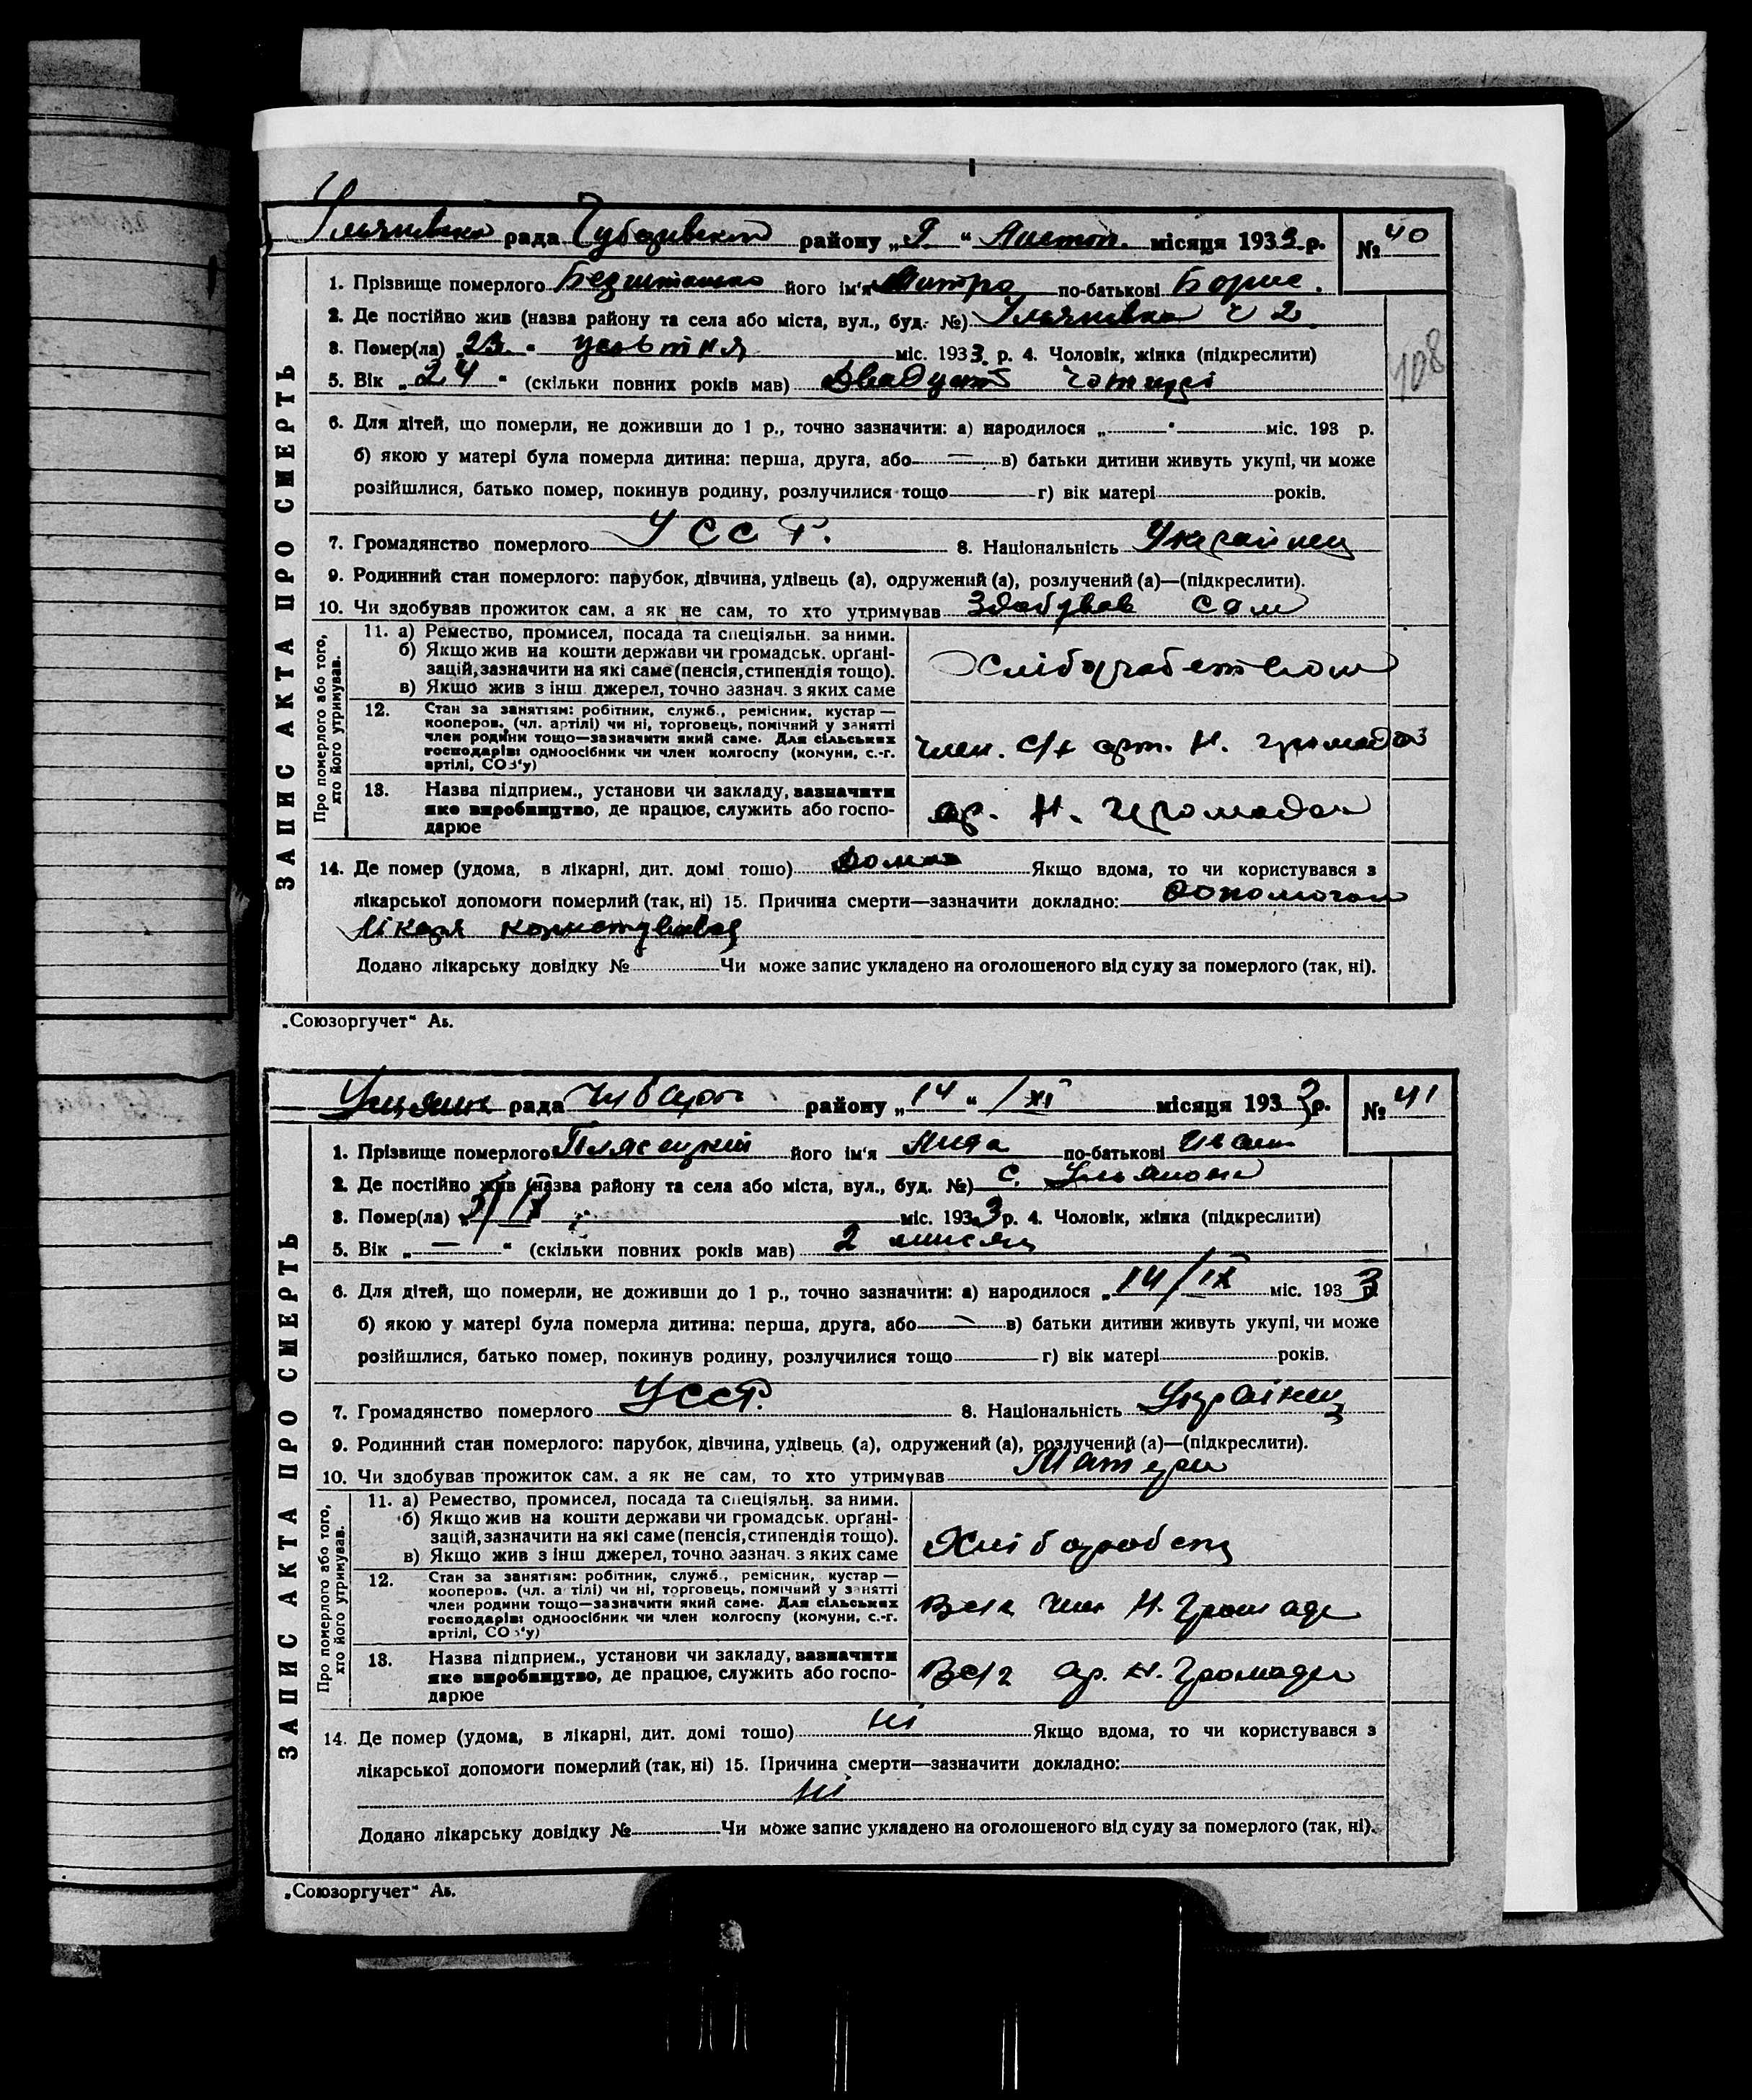 рада району „ “ Листоп. місяця 1933 р. № 40
ЗАПИС АКТА ПРО СМЕРТЬ
108
1. Прізвище померлого його ім'я по-батькові Борис.
2. Де постійно жив (назва району та села або міста, вул., буд. №) Ульянівка
3. Помер(ла) „23“ міс. 1933 р. 4. Чоловік, жінка (підкреслити)
5. Вік „24“ (скільки повних років мав) Двадцять чотирі
6. Для дітей, що померли, не доживши до 1 р., точно зазначити: а) народилося „ “ міс. 193 р.
б) якою у матері була померла дитина: перша, друга, або — в) батьки дитини живуть укупі, чи може
розійшлися, батько помер, покинув родину, розлучилися тощо г) вік матері років.
7. Громадянство померлого УССР. 8. Національність Українец
9. Родинний стан померлого: парубок, дівчина, удівець (а), одружений (а), розлучений (а)—(підкреслити).
10. Чи здобував прожиток сам, а як не сам, то хто утримував Здобував сам
Про померлого або того, хто його утримував.
11. а) Ремество, промисел, посада та спеціяльн. за ними.
б) Якщо жив на кошти держави чи громадськ. орґані-
зацій, зазначити на які саме (пенсія, стипендія тощо).
в) Якщо жив з інш джерел, точно зазнач. з яких саме
Хліборобством
12. Стан за занятіям: робітник, служб., ремісник, кустар —
кооперов. (чл. артілі) чи ні, торговець, помічний у занятті
член родини тощо—зазначити який саме. Для сільських
господарів: одноосібник чи член колгоспу (комуни, с.-г.
артілі, СОЗ'у)
член. с/г арт. Н. громада
13. Назва підприєм., установи чи закладу, зазначити
яке виробництво, де працює, служить або госпо-
дарює
ар. Н. Громада
14. Де помер (удома, в лікарні, дит. домі тощо) Дома Якщо вдома, то чи користувався з
лікарської допомоги померлий (так, ні) 15. Причина смерти—зазначити докладно: допомогою
лікаря користувався
Додано лікарську довідку № Чи може запис укладено на оголошеного від суду за померлого (так, ні).
„Союзоргучет“ Аь.
рада району „14“ /XI місяця 1933 р. № 41
ЗАПИС АКТА ПРО СМЕРТЬ
1. Прізвище померлого його ім'я Лида по-батькові Иван
2. Де постійно жив (назва району та села або міста, вул., буд. №) с. Ульяновка
3. Помер(ла) міс. 1933 р. 4. Чоловік, жінка (підкреслити)
5. Вік „—“ (скільки повних років мав) 2 мисяц
6. Для дітей, що померли, не доживши до 1 р., точно зазначити: а) народилося „14/IX міс. 1933
б) якою у матері була померла дитина: перша, друга, або — в) батьки дитини живуть укупі, чи може
розійшлися, батько помер, покинув родину, розлучилися тощо г) вік матері років.
7. Громадянство померлого УССР. 8. Національність Українец
9. Родинний стан померлого: парубок, дівчина, удівець (а), одружений (а), розлучений (а)—(підкреслити).
10. Чи здобував прожиток сам, а як не сам, то хто утримував Матери
Про померлого або того, хто його утримував.
11. а) Ремество, промисел, посада та спеціяльн. за ними.
б) Якщо жив на кошти держави чи громадськ. орґані-
зацій, зазначити на які саме (пенсія, стипендія тощо).
в) Якщо жив з інш джерел, точно зазнач. з яких саме
Хлібороб
12. Стан за занятіям: робітник, служб., ремісник, кустар —
кооперов. (чл. а тілі) чи ні, торговець, помічний у занятті
член родини тощо—зазначити який саме. Для сільських
господарів: одноосібник чи член колгоспу (комуни, с.-г.
артілі, СОЗ'у)
В с/г член Н. Громаде
13. Назва підприєм., установи чи закладу, зазначити
яке виробництво, де працює, служить або госпо-
дарює
В с/г ар. Н. Громаде
14. Де помер (удома, в лікарні, дит. домі тощо) ні Якщо вдома, то чи користувався з
лікарської допомоги померлий (так, ні) 15. Причина смерти—зазначити докладно:
ні
Додано лікарську довідку № Чи може запис укладено на оголошеного від суду за померлого (так, ні).
„Союзоргучет“ Аь.